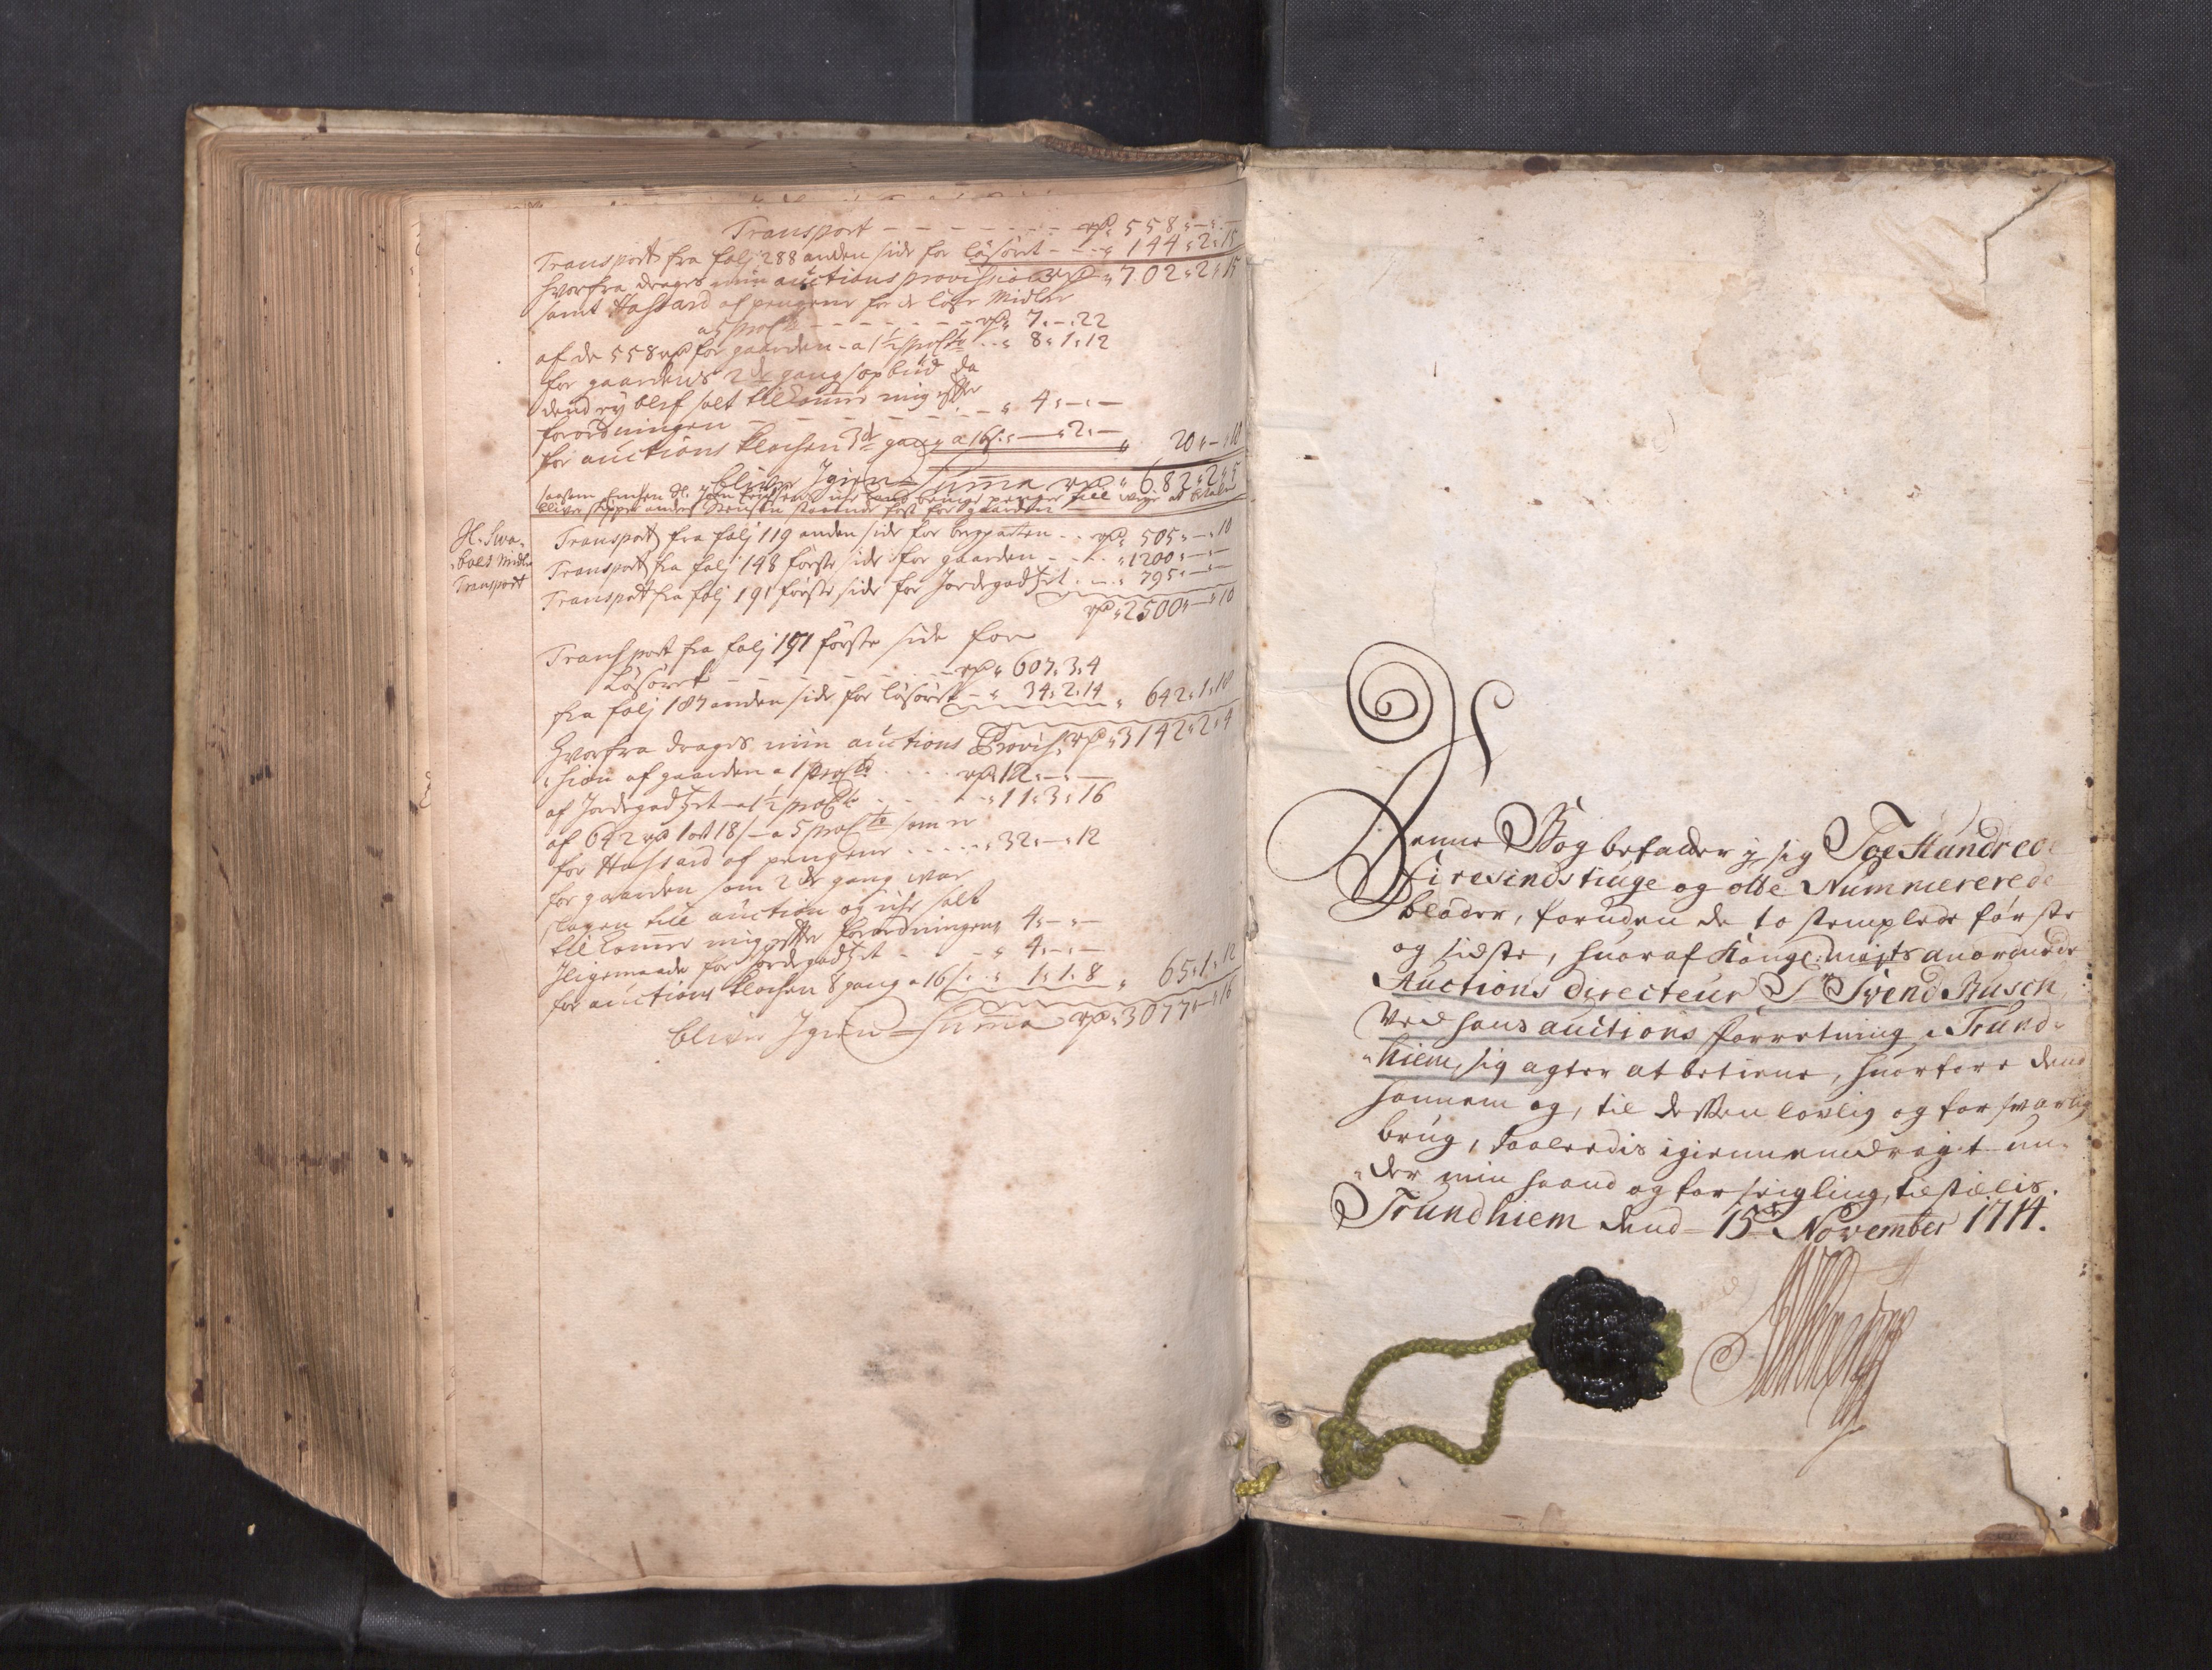 Transport - - - - - - - rd 558 „ - „ -
Transport fra folj 288 anden side for løsøret - - - „ 144 „ 2 „ 15
hvorfra drages min auctions provission rd „ 702 „ 2 „ 15
samt Hassard af pengene for de løse Midler
a 5 procto - - - - - - - rd „ 7 „ - „ 22
af de 558 rd for gaarden - a 1½ procto - - „ 8 „ 1 „ 12
for gaardens 2de gangs opbud da
dend ey blef solt tilkommer mig efter
forordningen - - - - - - - „ 4 „ - „ -
for auctions klochen 3de gang a 16 s „ - „ 2 „ - „ 20 „ - „ 10
bliver Igien Summa rd „ 682 „ 2 „ 5
bliver Skipper anders staaende fast for gaarden
Transport fra folj 119 anden side for - - rd „ 505 „ - „ 10
Transport fra folj 148 første side for gaarden - - - „ 1200 „ - „ -
Transport fra folj 191 første side for Jordegodtzet - - - „ 795 „ - „ -
rd „ 2500 „ - „ 10
Transport
Transport fra folj 191 første side for
Løsøret - - - - - - - rd „ 607 „ 3 „ 4
fra folj 187 anden side for løsøret - „ 34 „ 2 „ 14 „ 642 „ 1 „ 18
Hvorfra drages min auctions Provis- rd „ 3142 „ 2 „ 4
„sion af gaarden a 1 procto - - - - rd „ 12 „ - „ -
af Jordegodtzet - a 1½ procto - - - - „ 11 „ 3 „ 16
af 642 rd 1 ort 18 s - a 5 procto som er
for Hassard af pengene - - - - - „ 32 „ - „ 12
for gaarden som 2de gang var
slagen till auction og iche solt
tilkommer mig efter forordningen „ 4 „ - „ -
Iligemaade for Jordegodtzet - - „ 4 „ - „ -
for auctions klochen 8 gang a 16 s - „ 1 „ 1 „ 8 „ 65 „ 1 „ 12
bliver Igien Summa rd „ 3077 „ - „ 16
Denne Bog befatter j sig Toe Hundrede
Firesindstiuge og otte Nummererede
blader, foruden de to stemplede første
og sidste, huoraf Kongl: mayts anordnede
Auctions directeur Sr Svend Busch,
Ved hans auctions forretning i Trund-
„hiem, sig agter at betiene, huorfore dend
hannem og, til dessen lovlig og forsvarlig
brug, saaledis igiennemdragt un-
„der min haand og forseigling, tilstillis.
Trundhiem dend 15de November 1714.